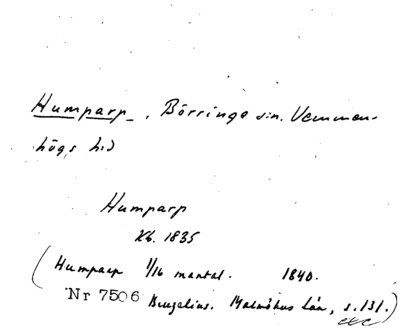 Humparp, Börringe sn. Vemmen-
högs hd
Humparp
Kb. 1835
(Humparp 1/16 mantal. 1840.
Nr 7506 Bruzelius. Malmöhus län, s. 131.)